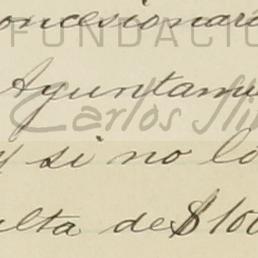 oncesionar
FUNDACIO
Ayuntam
Carlos Sli
y si no lo
ulta de $100